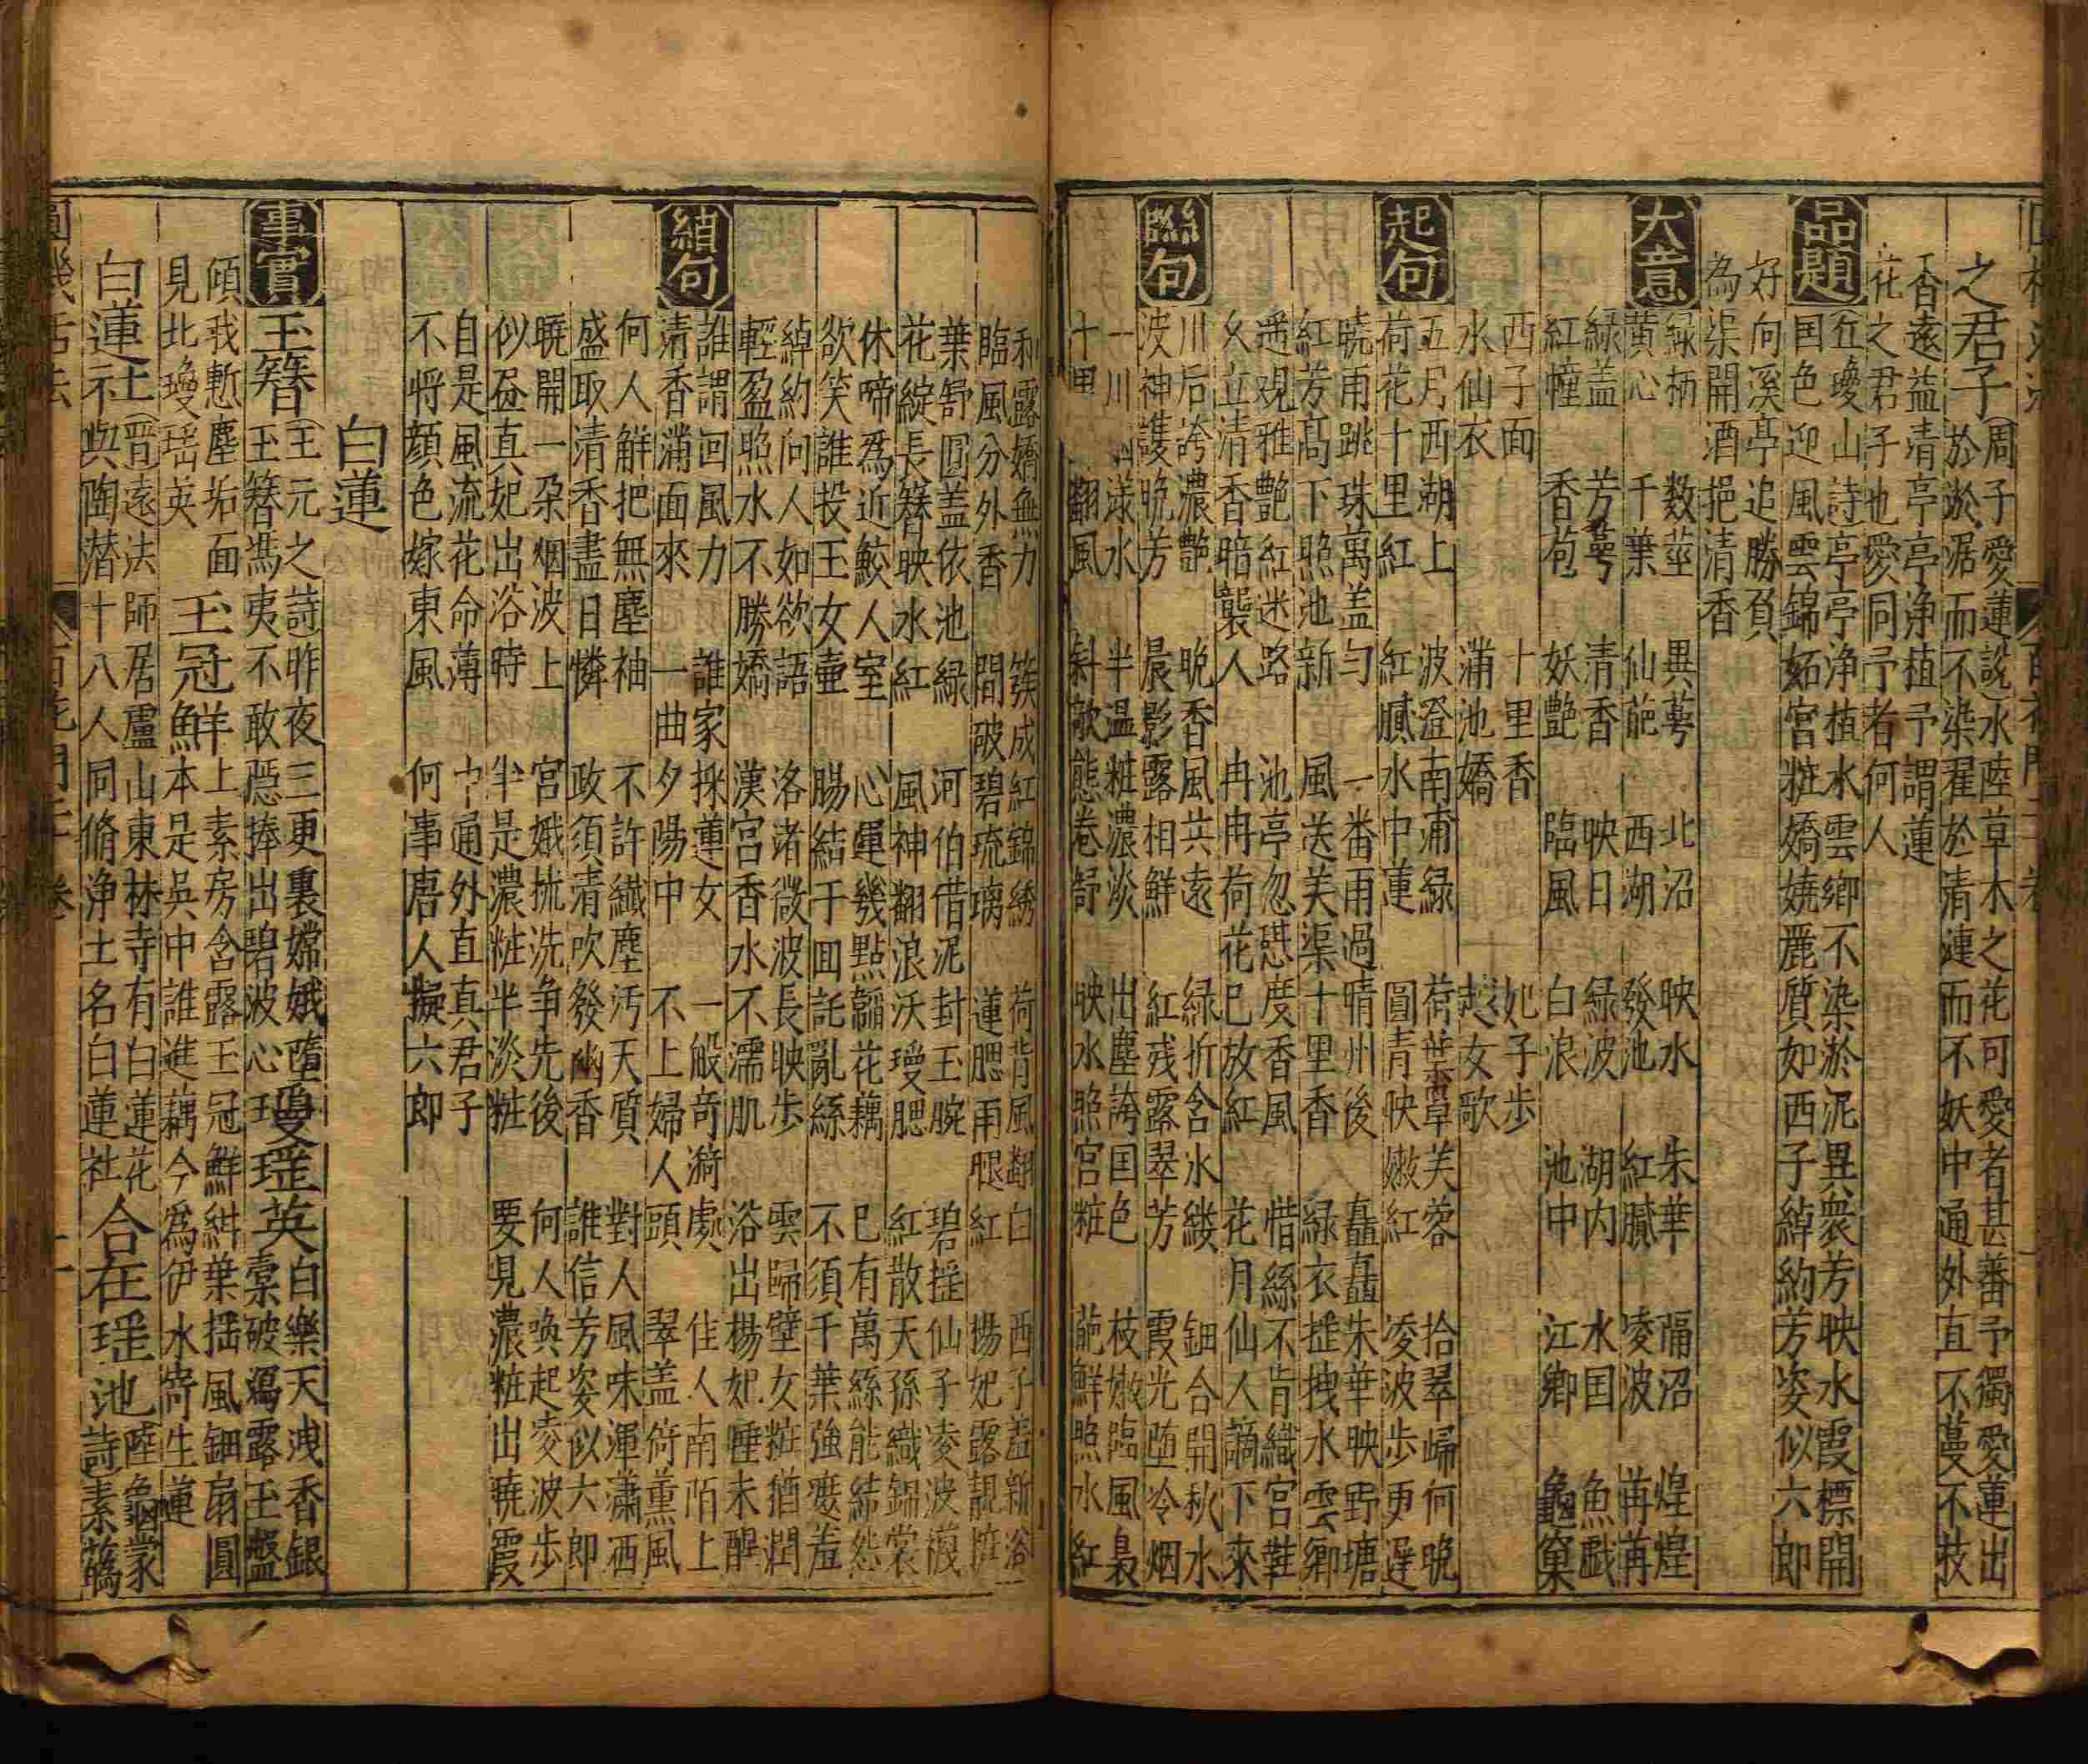 之君子(周子愛蓮說)水陸草木之花可愛者甚蕃予獨愛蓮出
於淤泥而不染濯於清漣而不妖中通外直不蔓不枝
香遠益清亭亭净植予謂蓮
花之君子也愛同予者何人
品題(丘瓊山詩)亭亭淨植水雲鄉不染淤泥異衆芳映水霞標開
国色迎風雲錦妬宮粧嬌嬈麗質如西子綽約芳姿似六郎
好向溪亭追勝負
為渠開酒挹清香
大意 綠柄 数莖 異萼 北沼 映水 朱華 隔沼 煌煌
黄心 千葉 仙葩 西湖 發池 紅膩 凌波 苒苒
綠盖 芳萼 清香 映日 綠波 湖内 水国 魚戯
紅幢 香苞 妖艷 臨風 白浪 池中 江鄉 龜窠
西子面 十里香 妃子步
水仙衣 滿池嬌 越女歌
起句 五月西湖上 波澄南浦綠 荷葉罩芙蓉 拾翠歸何晚
荷花十里紅 紅膩水中蓮 圓青映嫩紅 凌波步更遲
曉雨跳珠萬盖勻 一番雨過晴州後 矗矗朱華映野塘
紅芳髙下照池新 風送美渠十里香 綠衣搖拽水雲鄉
遥观雅艷紅迷路 池亭忽恐度香風 惜絲不肯織宮鞋
久立清香暗襲人 冉冉荷花已放紅 花月仙人謫下來
聮句 川后誇濃艷 晚香風共遠 綠折含水縷 鈿合開秋水
波神護晚芳 晨影露相鮮 紅残露翠芳 霞光堕冷烟
一川漾水 半温粧濃淡 出塵誇国色 枝嫩臨風裊
十里翻風 斜欹態卷舒 映水照宮粧 葩鮮照水紅
和露嬌無力 簇成紅錦綉 荷背風翻白 西子盖新浴
臨風分外香 間破碧琉璃 蓮腮雨腿紅 楊妃露靚粧
葉舒圓盖依池綠 河伯借泥封玉腕 碧搖仙子凌波襪
花綻長簪映水紅 風神翻浪沃瓊腮 紅散天孫織錦裳
休啼爲近鮫人室 心運幾點韜花藕 已有萬絲能結怨
欲笑誰投玉女壷 腸結于回託亂絲 不須千葉強遮羞
綽約向人如欲語 洛渚微波長映步 雲歸壁女粧猶潤
輕盈照水不勝嬌 漢宮香水不濡肌 浴出楊妃睡未醒
結句 誰謂回風力 誰家採蓮女 一般竒漪處 佳人南陌上
清香滿面來 一曲夕陽中 不上婦人頭 翠盖倚薰風
何人觧把無塵袖 不許纖塵污天質 對人風味渾瀟洒
盛取清香盡日憐 政須清吹發幽香 誰信芳姿似六郎
曉開一朶烟波上 宮娥梳洗争先後 何人唤起凌波步
似画真妃出浴時 半是濃粧半淡粧 要見濃粧出曉霞
自是風流花命薄 中通外直真君子
不将顔色嫁東風 何事唐人擬六郎
白蓮
事實 玉簪(王元之詩)昨夜三更裏嫦娥墮
玉簪馮夷不敢隱捧出碧波心 瓊瑶英 白樂天洩香銀
囊破瀉露玉盤
傾我慙塵垢面
見北瓊瑶英 玉冠鮮 上素房含露玉冠鮮紺葉揺風鈿扇圓
本是吳中誰進藕今爲伊水寄生蓮
白蓮社(晋)遠法師居盧山東林寺有白蓮花
與陶潜十八人同脩浄土名白蓮社 合在瑶池 陸龜蒙
詩素蘤